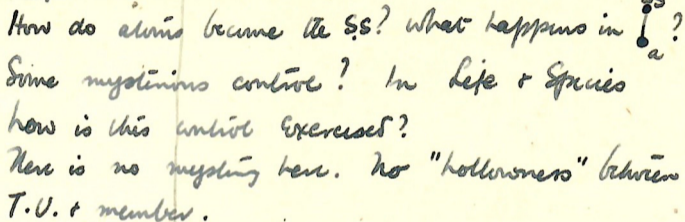 How do atoms become the S.S? what happens in SS a ?
Some mysterious control? In Life & Species
how is this control exercised?
There is no mystery here. No "hollowness" between
T.U. & member.